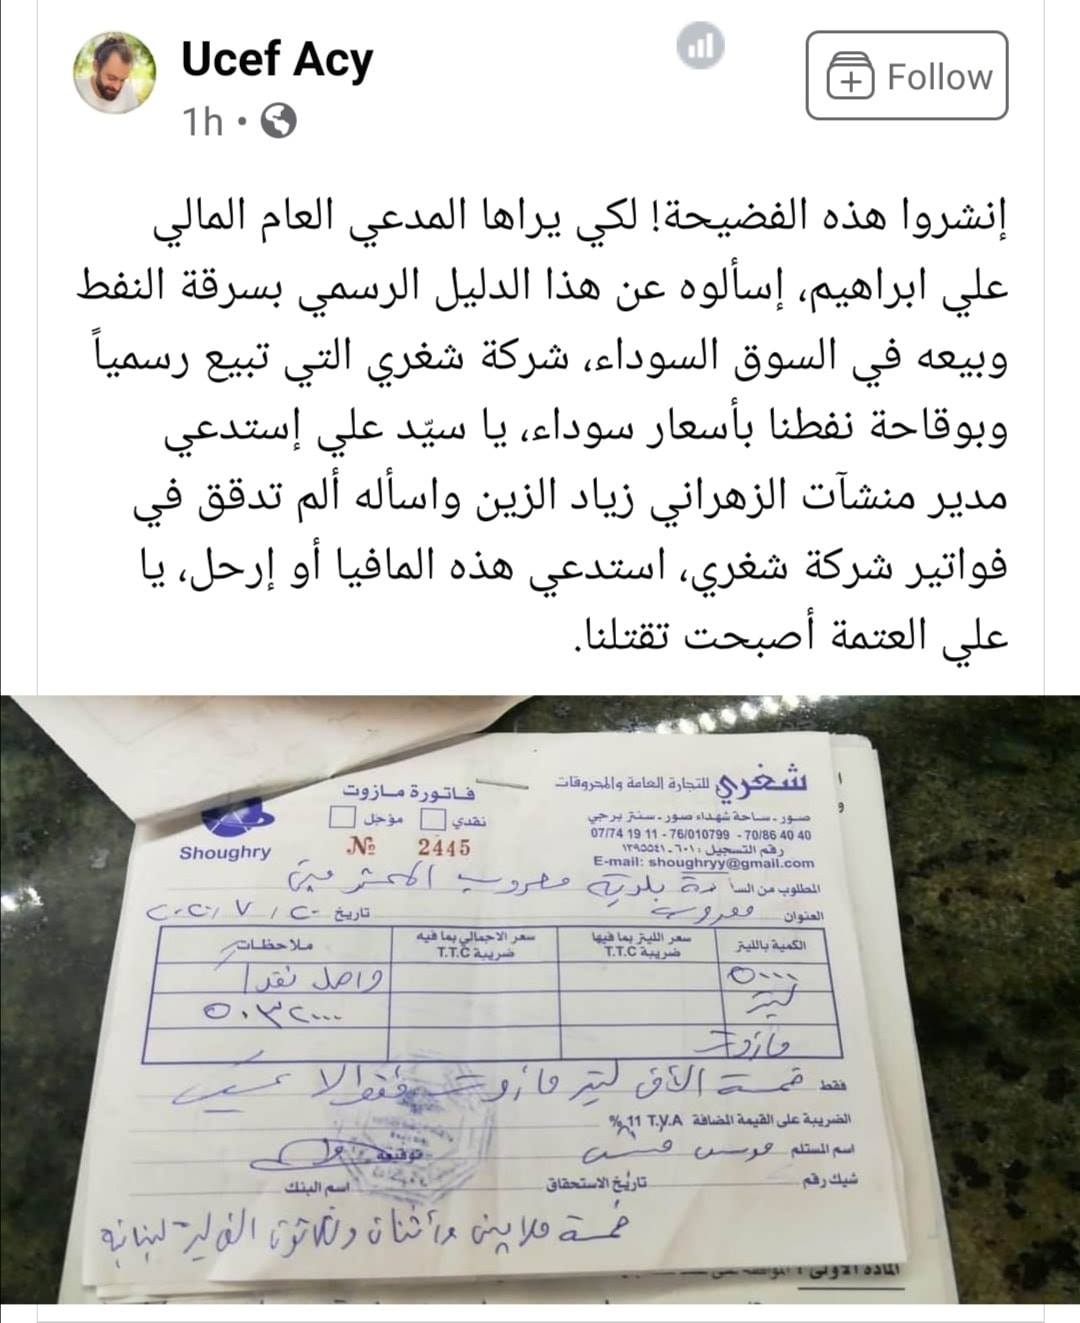 Ucef Acy
1h
Follow
إنشروا هذه الفضيحة! لكي يراها المدعي العام المالي
علي ابراهيم، إسألوه عن هذا الدليل الرسمي بسرقة النفط
وبيعه في السوق السوداء، شركة شغري التي تبيع رسمياً
وبوقاحة نفطنا بأسعار سوداء، يا سيّد علي إستدعي
مدير منشآت الزهراني زياد الزين واسأله ألم تدقق في
فواتير شركة شغري، استدعي هذه المافيا أو إرحل، يا
علي العتمة أصبحت تقتلنا.
شغري للتجارة العامة والمحروقات
صور - ساحة شهداء صور - سنتر برجي
07/74 19 11 - 76/010799 - 70/86 40 40
رقم التسجيل: ٦٠١-١٢٩٥٥٤١
E-mail: shoughryy@gmail.com
Shoughry
فاتورة مازوت
نقدي مؤجل
№ 2445
المطلوب من السادة بلدية معروب المحترمين
العنوان معروب
تاريخ ٢٠٢٠/٧/٢٠
الكمية بالليتر
سعر الليتر بما فيها ضريبة T.T.C
سعر الاجمالي بما فيه ضريبة T.T.C
ملاحظات
٥٠٠٠ ليتر مازوت
واصل نقداً
٥٠٣٢٠٠٠
فقط خمسة الآف ليتر مازوت فقط لا غير
الضريبة على القيمة المضافة T.V.A 11 %
اسم المستلم
توقيعه
شيك رقم
تاريخ الاستحقاق
اسم البنك
خمسة ملايين وأثنان وثلاثون الف ليرة لبنانية
المادة الأولى: